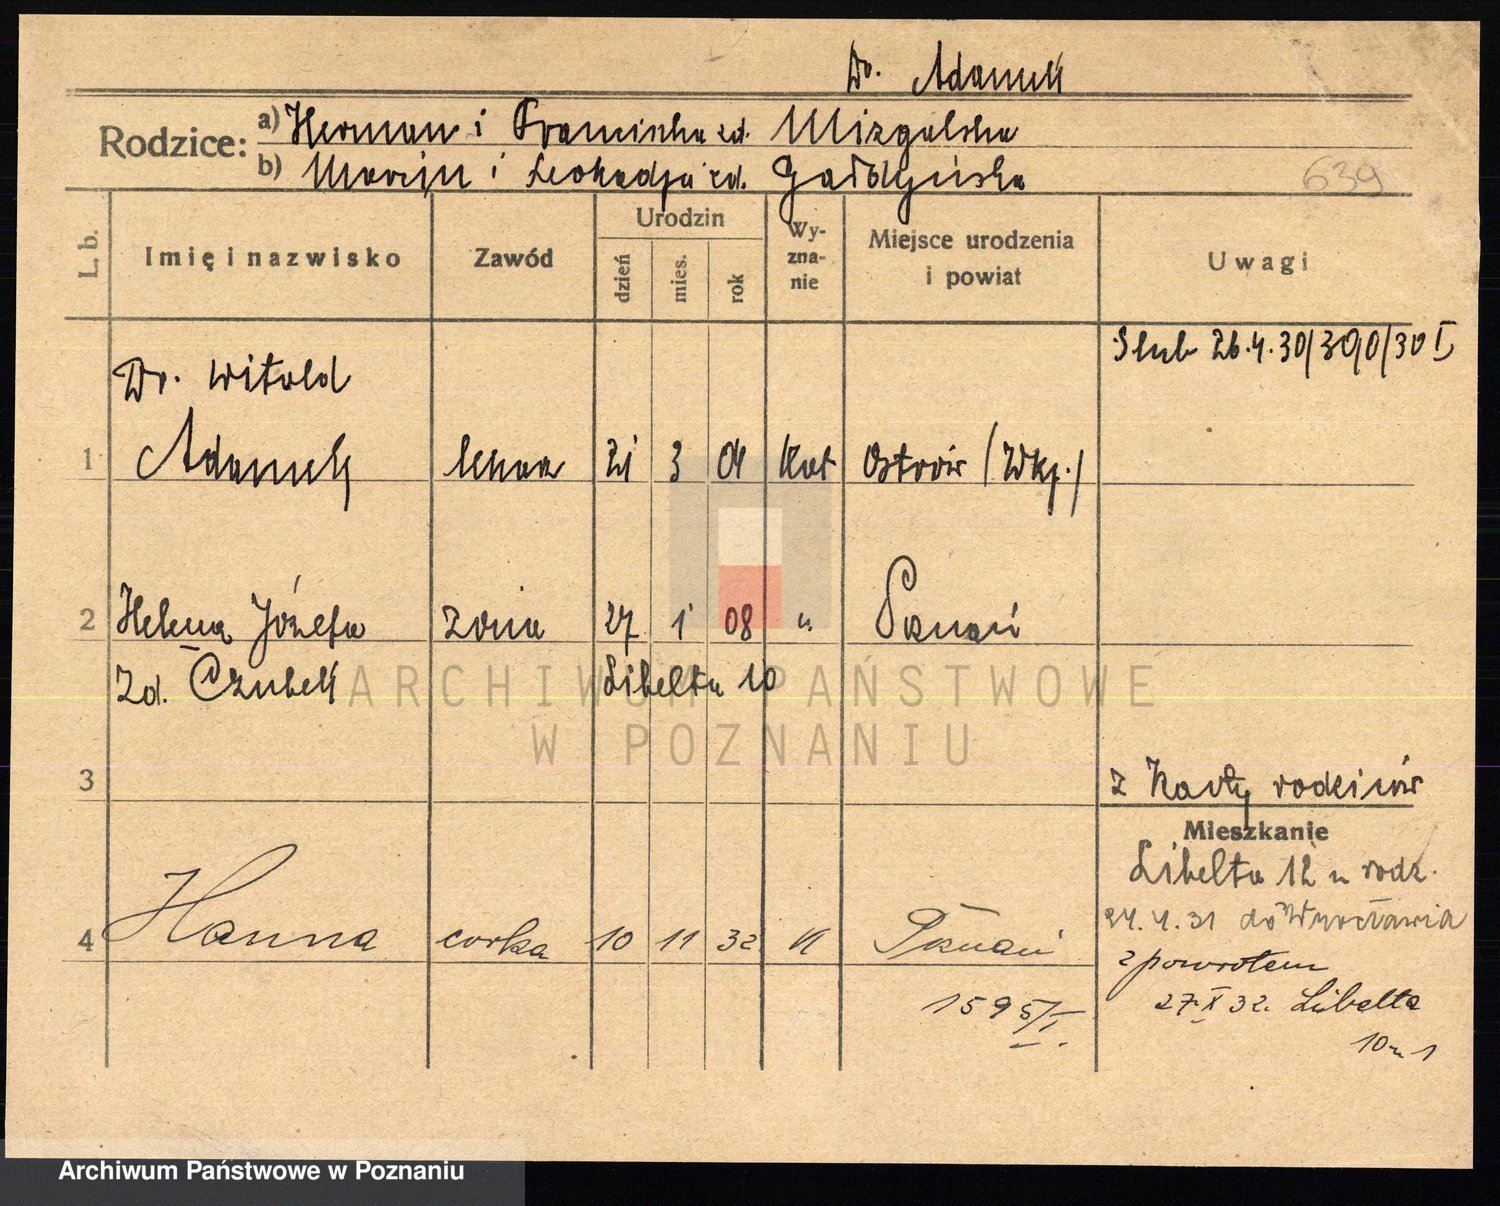 Dr. Adamek
Rodzice: a) Herman i Franciszka zd. Mizgalska
b) Marcin i Leokadja zd. Gałdyńska
639
L. b. Imię i nazwisko Zawód Urodzin dzień mies. rok Wyznanie Miejsce urodzenia i powiat Uwagi
Ślub 26.4.30/390/30 I
Dr. Witold
1 Adamek lekarz 21 3 04 kat Ostrów (Wkp.)
2 Helena Józefa żona 27 1 08 " Poznań
zd. Czubek Libelta 10
ARCHIWUM PAŃSTWOWE
W POZNANIU
3
z karty rodziców
Mieszkanie
Libelta 12 u rodz.
4 Hanna corka 10 11 32 K Poznań
24.4.31 do Wrocławia
z powrotem
1595/I.
27.X 32. Libelta
10 m 1
Archiwum Państwowe w Poznaniu